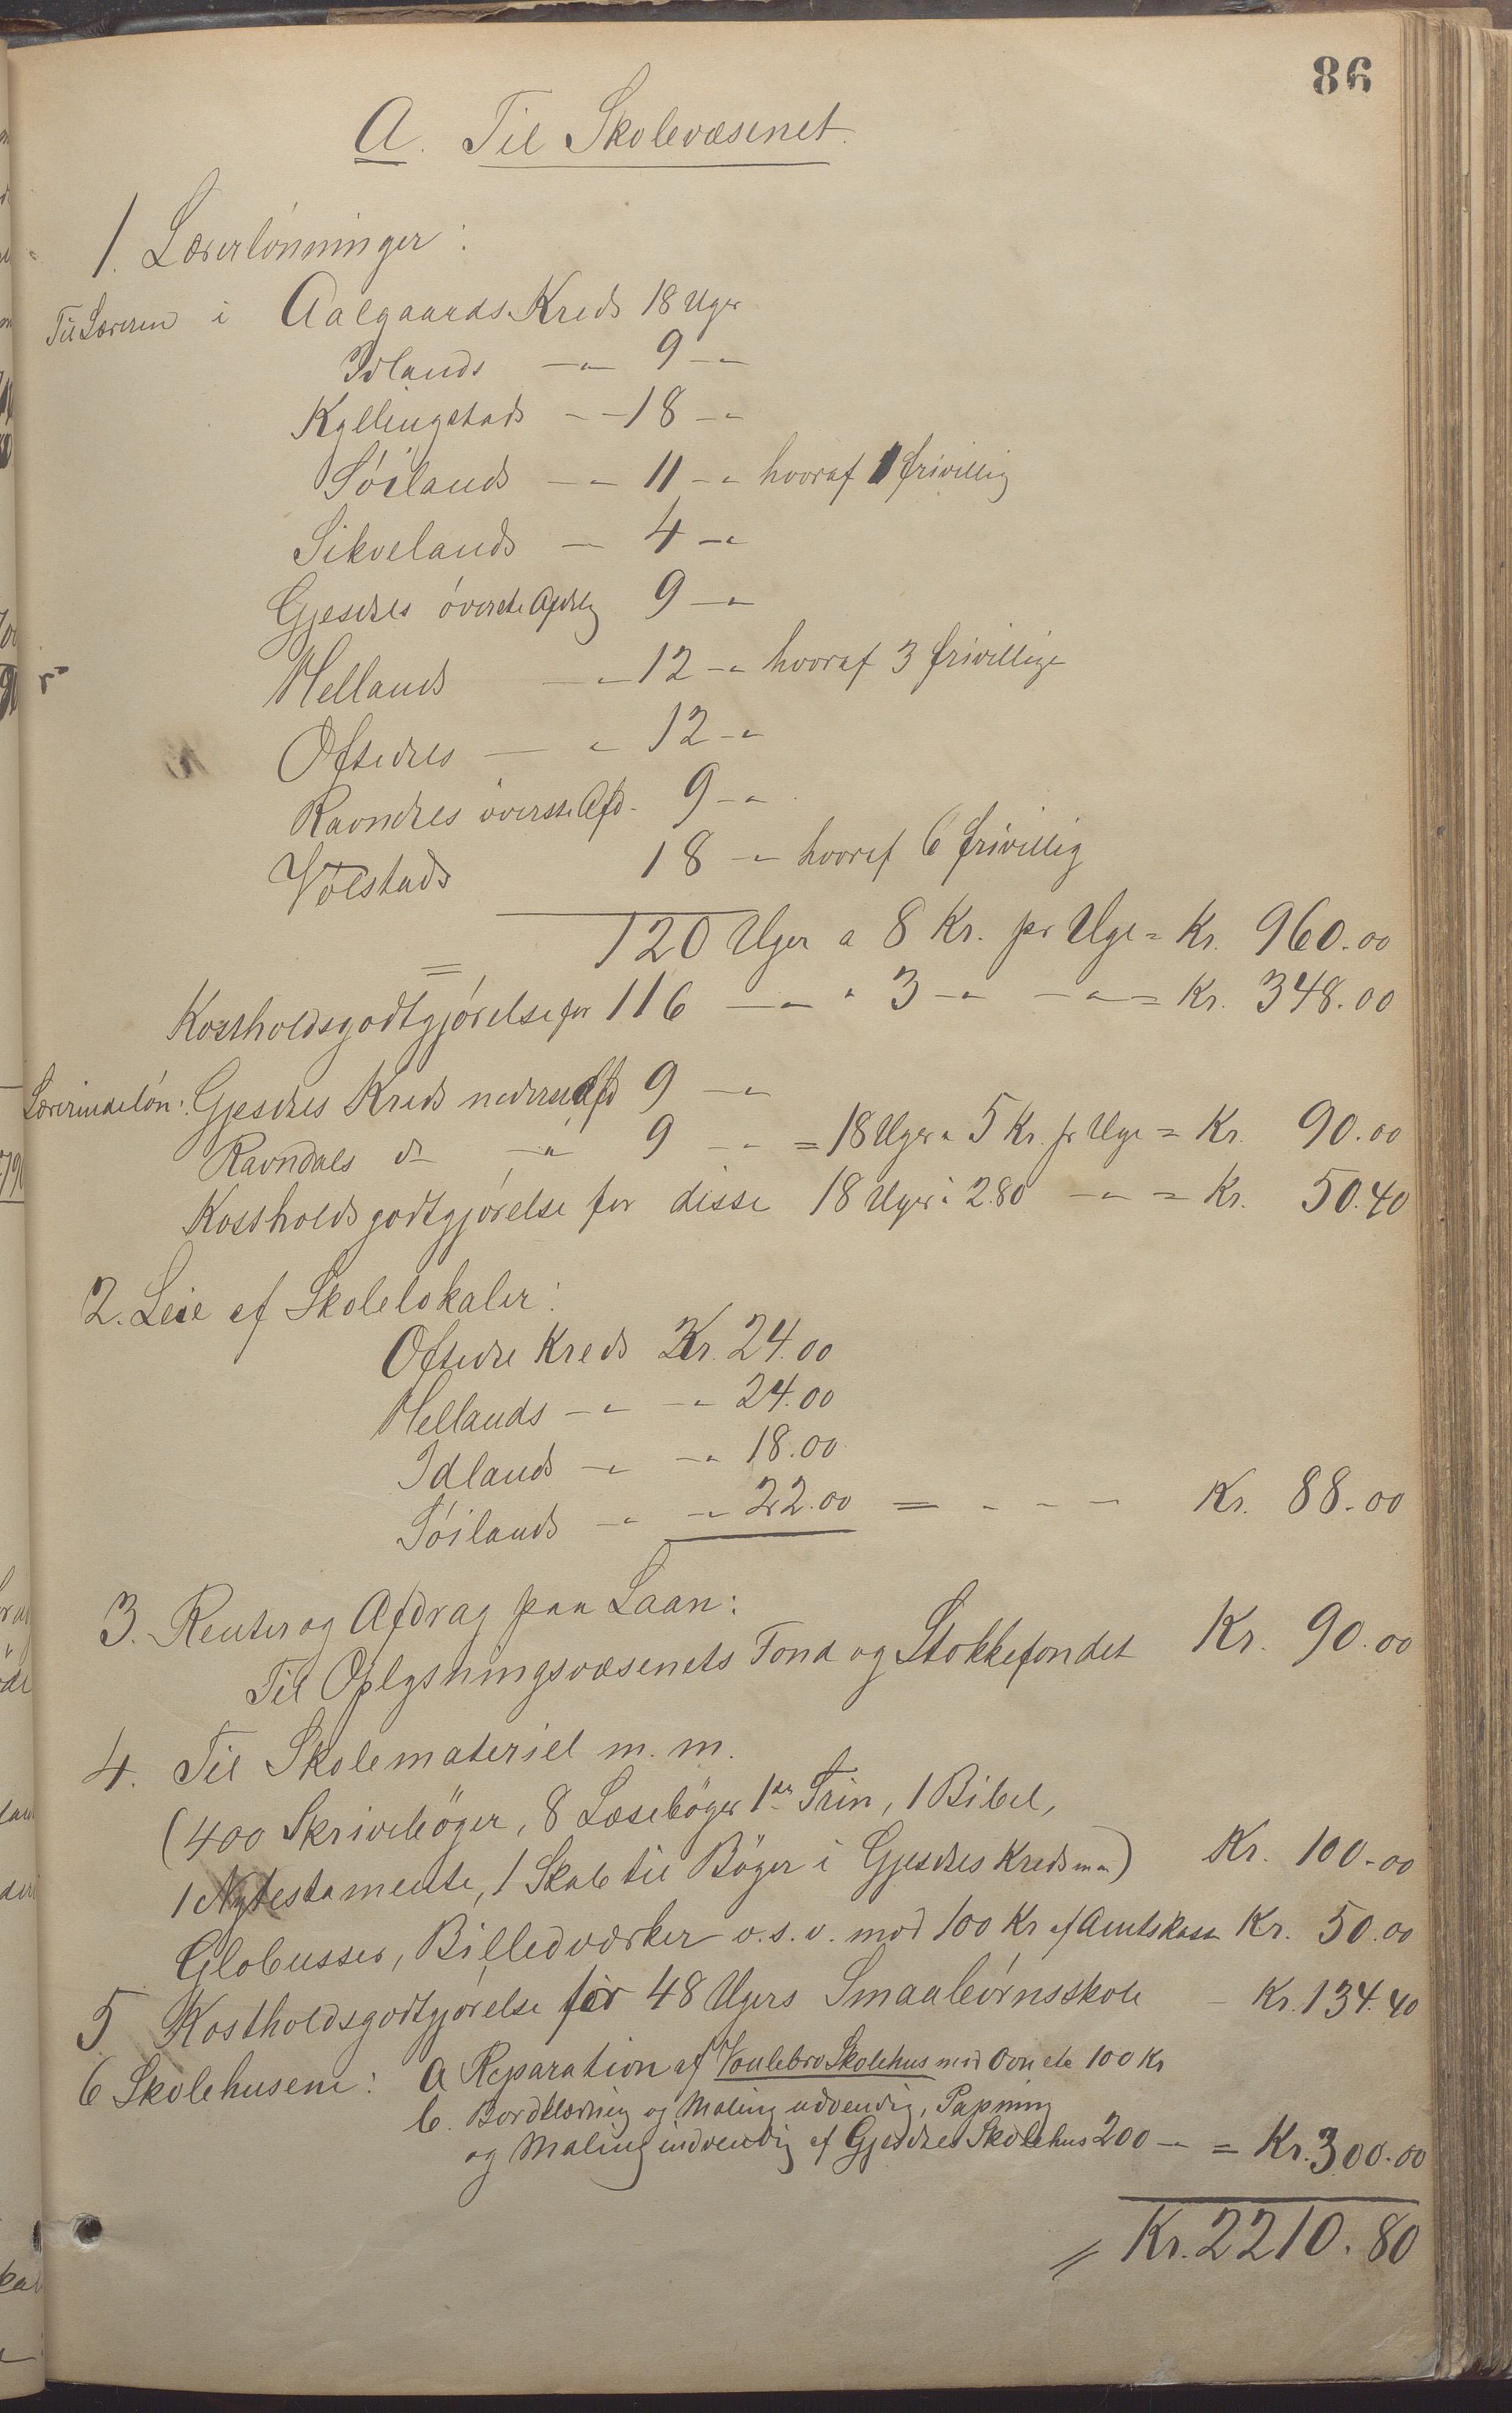 86
A. Til Skolevæsenet.
1. Lærerlønninger:
Til Læreren i Aalgaards Kreds 18 Uger
Idlands —"— 9 —"
Kyllingstads — — 18 —"
Søilands — — 11 —" hvoraf 1 frivillig
Sikvelands — 4 —"
Gjesdals øverste Afdlg 9 —"
Hellands —"— 12 —" hvoraf 3 frivillige
Oftedals — " 12 —"
Ravndals øverste Afd. 9 —"
Vølstads 18 —" hvoraf 6 frivillig
120 Uger a 8 Kr. pr Uge = Kr. 960.00
Kostholdsgodtgjørelse for 116 —"— " 3 —" —"— = Kr. 348.00
Lærerindeløn: Gjesdals Kreds nederste Afd 9 —"
Ravndals do —"— 9 —" = 18 Uger a 5 Kr. pr Uge = Kr. 90.00
Kostholdsgodtgjørelse for disse 18 Uger a 2.80 —"— = Kr. 50.40
2. Leie af Skolelokaler:
Oftedal Kreds Kr. 24.00
Hellands —"— —" 24.00
Idlands —"— —" 18.00
Søilands —"— —" 22.00 = - - - Kr. 88.00
3. Renter og Afdrag paa Laan:
Til Oplysningsvæsenets Fond og Stokkefondet Kr. 90.00
4. Til Skolemateriel m. m.
(400 Skrivebøger, 8 Læsebøger 1ste Trin, 1 Bibel,
1 Nytestamente, 1 Skab til Bøger i Gjesdals Kreds m m) Kr. 100.00
Globusser, Billedværker o. s. v. mod 100 Kr af Amtskassen Kr. 50.00
5 Kostholdsgodtgjørelse for 48 Ugers Smaabørnsskole - Kr. 134.40
6 Skolehusene: a Reparation af Voulebro Skolehus med Ovn etc 100 Kr
b. Bordklædning og Maling udvendig, Papning
og Maling indvendig af Gjesdals Skolehus 200 —" = Kr. 300.00
= Kr. 2210.80